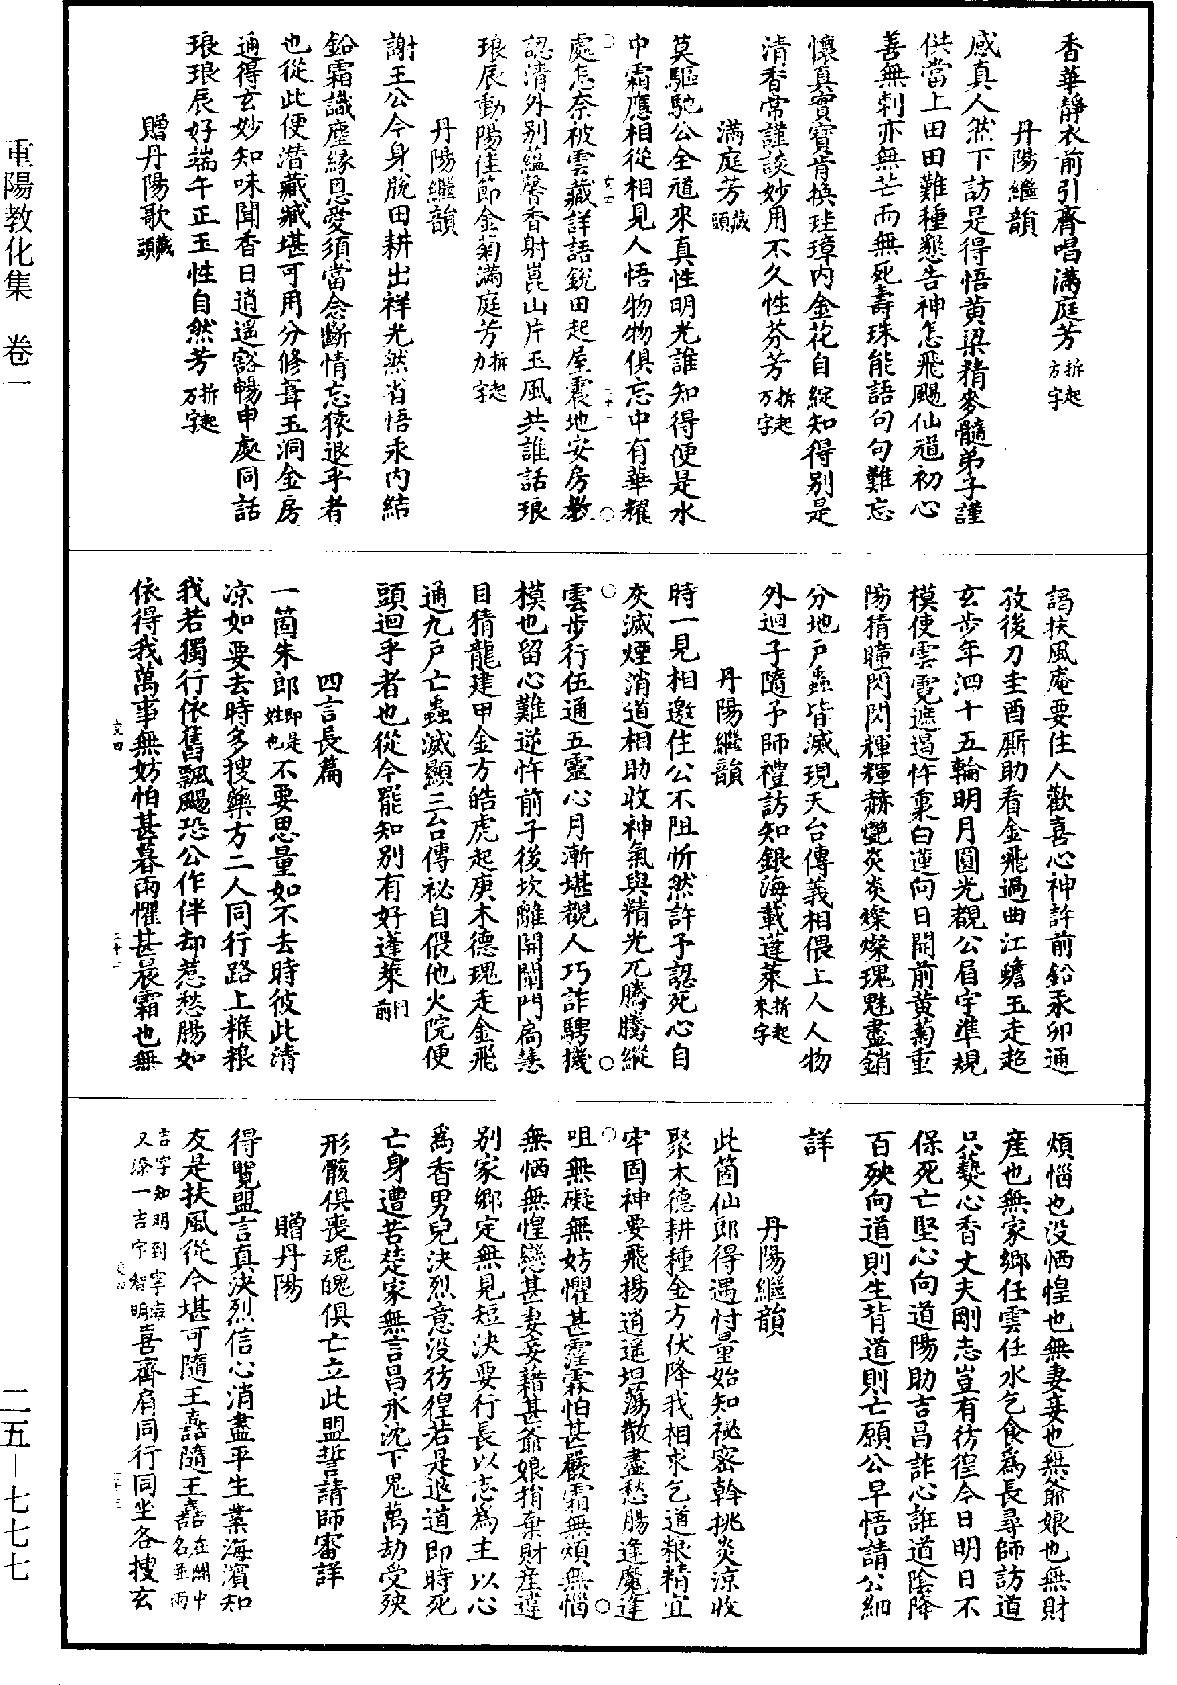 重陽教化集　卷一
二五—七七七
香華靜衣前引齊唱滿庭芳拆起方字
丹陽繼韻
感真人然下訪是得悟黃梁精麥髓弟子謹
供當上田田難種懇告神怎飛颺仙道初心
善無刺亦無芒而無死壽珠能語句句難忘
懷真實寶肯換珪璋內金花自綻知得别是
清香常謹談妙用不久性芬芳拆起万字
滿庭芳藏頭
莫驅馳公全道來真性明光誰知得便是水
中霜應相從相見人悟物物俱忘中有華耀
處怎奈被雲藏詳語銳田起屋震地安房教
認清外别藴馨香射崑山片玉風共誰話琅
琅辰動陽佳節金菊滿庭芳拆起力字
丹陽繼韻
謝王公今身脱田耕出祥光然省悟汞内結
鉛霜識塵緣恩愛須當念斷情忘猿退乎者
也從此便潜藏臧堪可用分修葺玉洞金房
通得玄妙知味聞香日逍遥豁暢申處同話
琅琅辰好端午正玉性自然芳拆起万字
贈丹陽歌藏頭
謁扶風庵要住人歡喜心神許前鉛汞卯通
孜後刀圭酉厮助看金飛過曲江蟾玉走超
玄步年泗十五輪明月圓光覩公眉宇準規
模使雲霓遮遏忤稟白蓮向日開前黄菊重
陽猜瞳閃閃輝輝赫艷炎炎燦燦瑰魁盡銷
分地戸蟲皆滅現天台傳義相偎上人人物
外迴子隨予師禮訪知銀海載蓬萊拆起來字
丹陽繼韻
時一見相邀住公不阻忻然許予認死心自
灰滅煙消道相助收神氣與精光兀騰騰縱
雲步行伍通五靈心月漸堪覩人巧詐騁機
模也留心難逆忤前子後坎離開闡門高慧
目猜龍建甲金方皓虎起庚木德瑰走金飛
通九戸亡蟲滅顯三台傳祕自偎他火院便
頭迴乎者也從今罷知别有好蓬萊門前
四言長篇
一箇朱郎即是姓也不要思量如不去時彼此清
凉如要去時多搜藥方二人同行路上餱粮
我若獨行依舊飄颺恐公作伴却惹愁腸如
依得我萬事無妨怕甚暮雨懼甚晨霜也無
煩惱也没恓惶也無妻妾也無爺娘也無財
產也無家鄉任雲任水乞食為長尋師訪道
只爇心香丈夫剛志豈有彷徨今日明日不
保死亡堅心向道陽助吉昌詐心誑道陰降
百殃向道則生背道則亡願公早悟請公細
詳
丹陽繼韻
此箇仙郎得遇忖量始知祕密斡挑炎凉收
聚木德耕種金方伏降我相求乞道粮精宜
牢固神要飛揚逍遥坦蕩散盡愁腸逢魔逢
咀無礙無妨懼甚霪霖怕甚嚴霜無煩無惱
無恓無惶戀甚妻妾藉甚爺娘捎棄財產違
别家鄉定無見短決要行長以志為主以心
為香男兒決烈意没彷徨若是退道即時死
亡身遭苦楚家無言昌永沈下鬼萬劫受殃
形骸俱喪魂魄俱亡立此盟誓請師審詳
贈丹陽
得覽盟言真決烈信心消盡平生業海濵知
友是扶風從今堪可隨王嚞隨王嚞在關中名亜兩
吉字知明到寧海又添一吉字智明喜齊肩同行同坐各搜玄